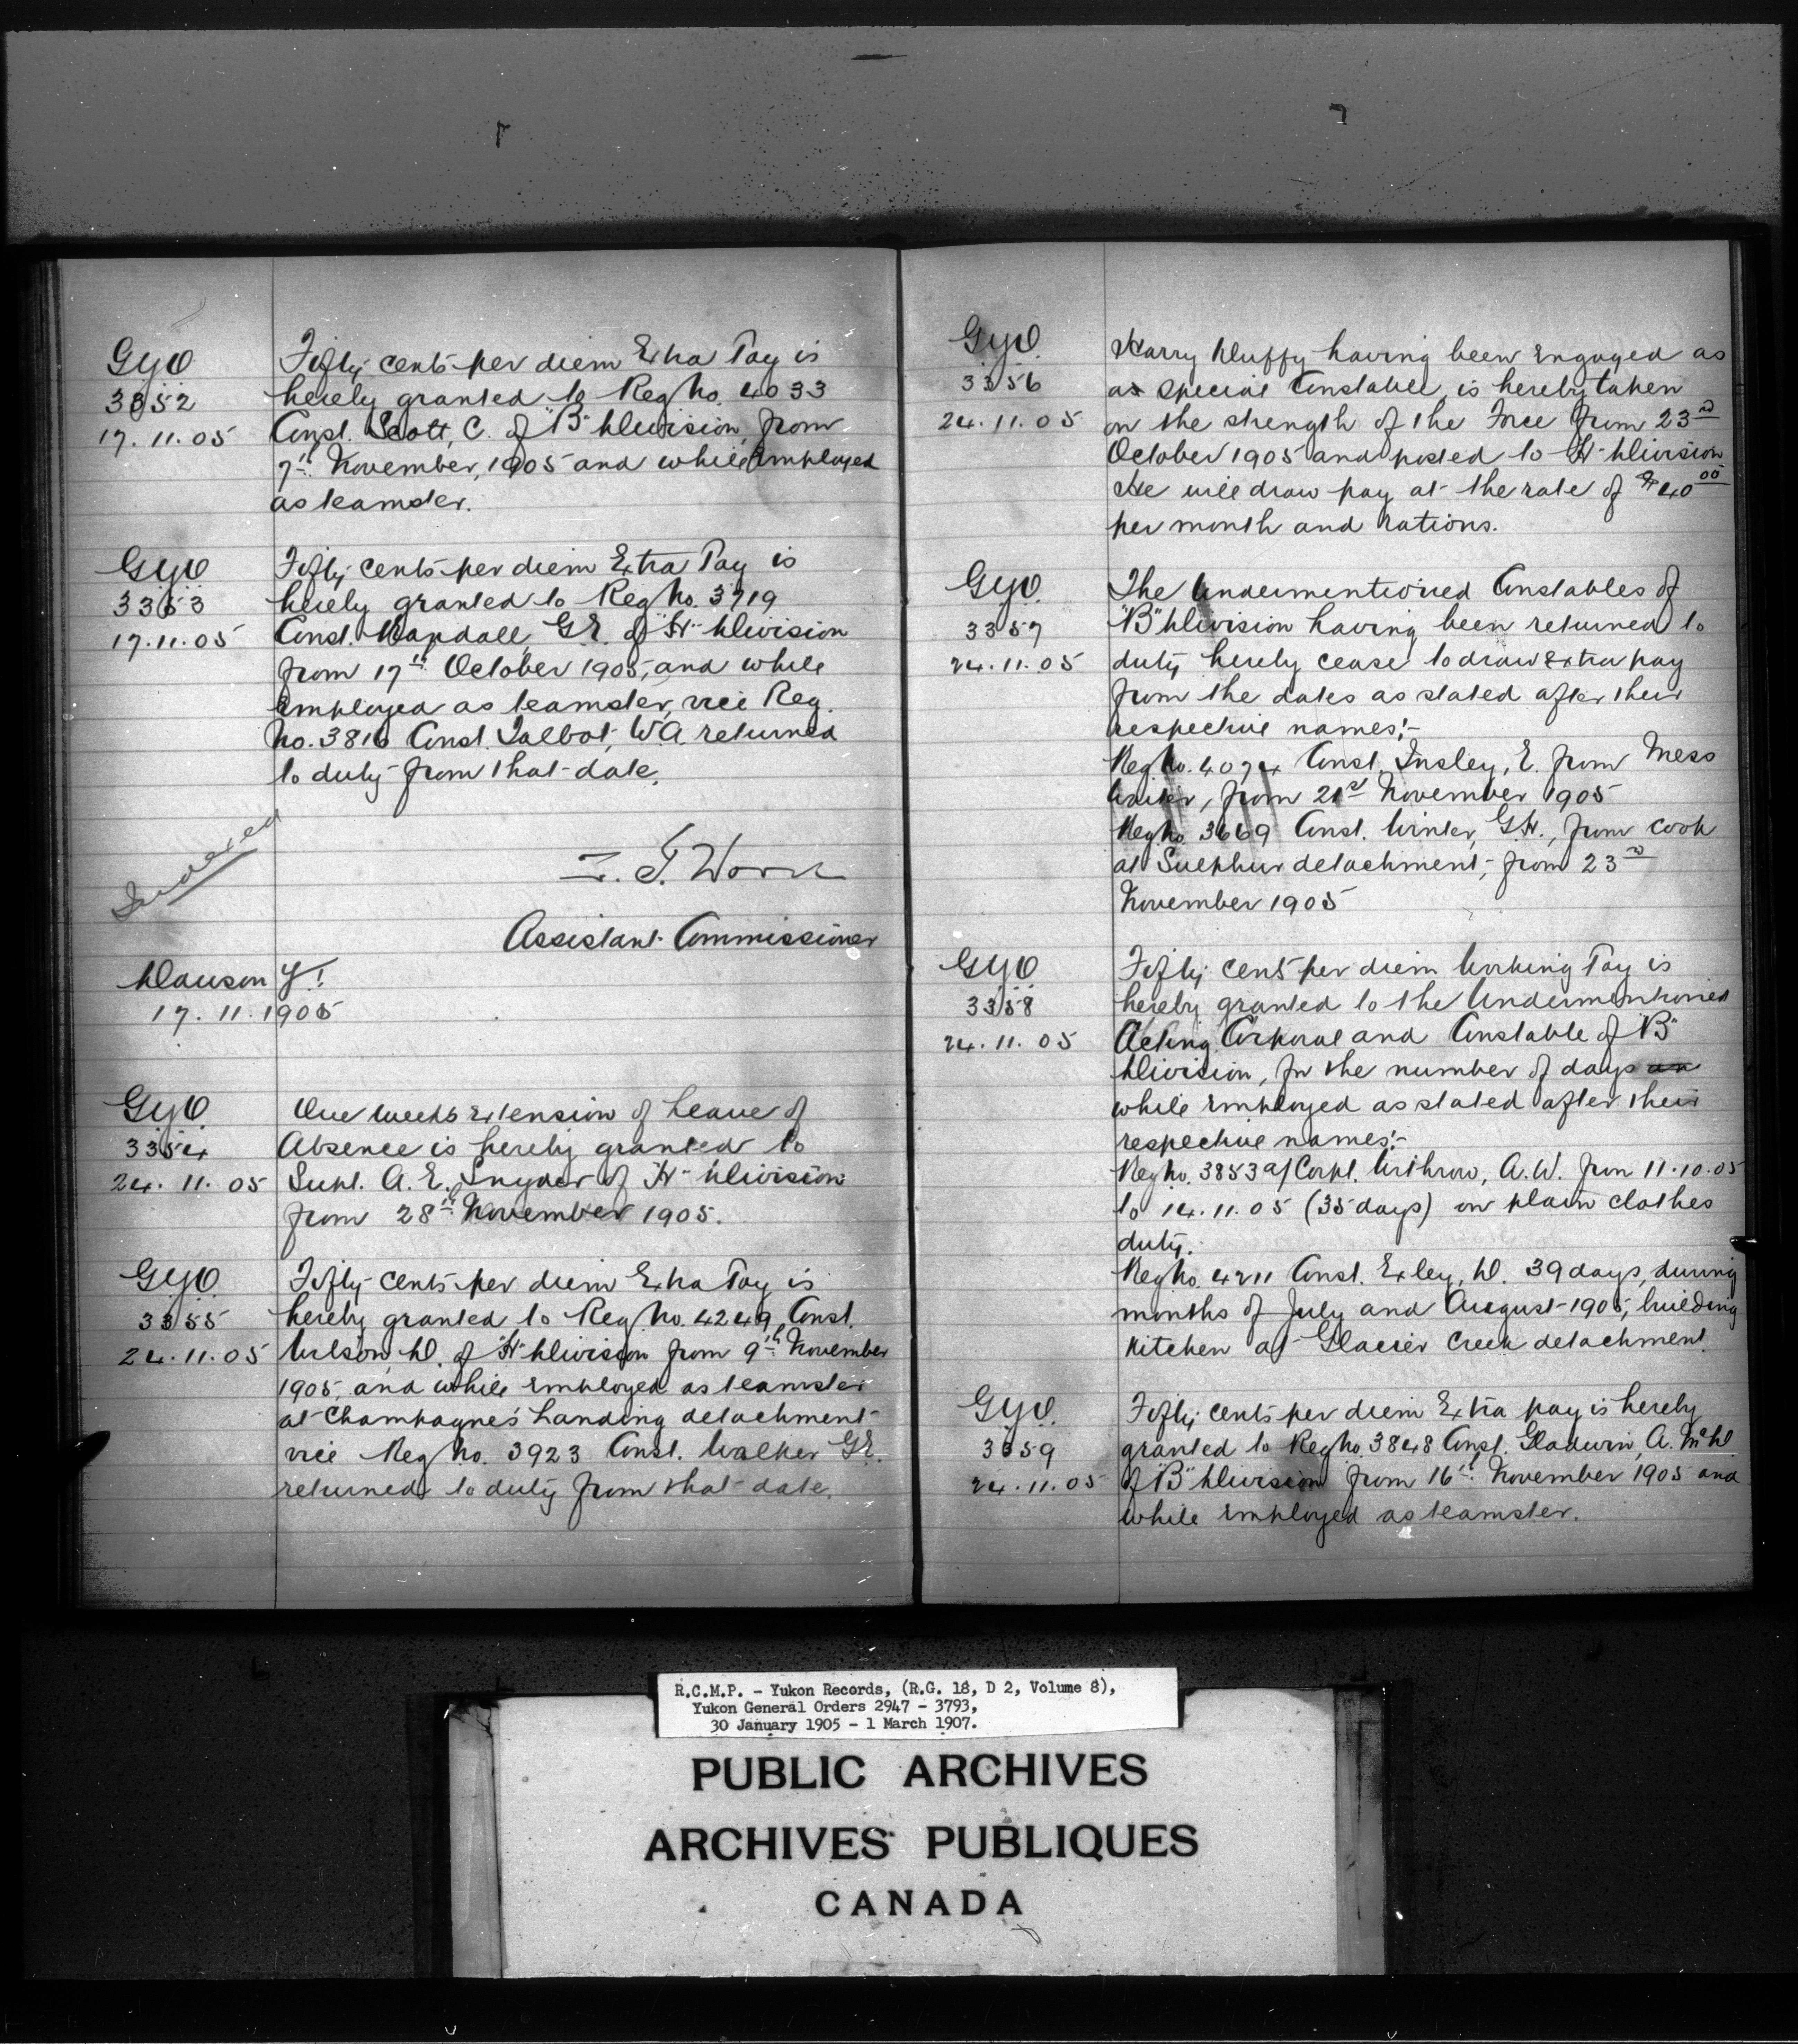 G.Y.O.
3352
17.11.05
Fifty cents per diem Extra Pay is
hereby granted to Reg No. 4033
Const. Scott, C. of "B" Division, from
7th November, 1905 and while Employed
as teamster.
G.Y.O.
3353
17.11.05
Fifty cents per diem Extra Pay is
hereby granted to Reg No. 3719
Const. Mapdall, G.E. of "H" Division
from 17th October 1905, and while
Employed as teamster, vice Reg.
No. 3816 Const. Talbot, W.A. returned
to duty from that date.
Indexed
Z. T. Wood
Assistant Commissioner
Dawson Y.T.
17.11.1905
G.Y.O.
3354
24.11.05
One weeks Extension of Leave of
Absence is hereby granted to
Supt. A. E. Snyder of "H" Division
from 28th November 1905.
G.Y.O.
3355
24.11.05
Fifty cents per diem Extra Pay is
hereby granted to Reg. No. 4249, Const.
Wilson, D. of "H" Division from 9th November
1905, and while Employed as teamster
at Champagne's Landing detachment
vice Reg No. 3923 Const. Walker G.E.
returned to duty from that date.
G.Y.O.
3356
24.11.05
Harry Duffy having been Engaged as
as special Constable, is hereby taken
on the strength of the Force from 23rd
October 1905 and posted to "H" Division
He will draw pay at the rate of $40.00
per month and rations.
G.Y.O.
3357
24.11.05
The Undermentioned Constables of
"B" Division having been returned to
duty, hereby cease to draw Extra pay
from the dates as stated after their
respective names:-
Reg No. 4074 Const. Insley, E. from Mess
Waiter, from 21st November 1905
Reg No. 3669 Const. Winter, G.H., from cook
at Sulphur detachment, from 23rd
November 1905
G.Y.O.
3358
24.11.05
Fifty cents per diem Working Pay is
hereby granted to the Undermentioned
Acting Corporal and Constable of "B"
Division, for the number of days
while Employed as stated after their
respective names:-
Reg No. 3853 a/Corpl. Withrow, A.W. from 11.10.05
to 14.11.05 (35 days) on plain clothes
duty.
Reg No. 4211 Const. Exley, D. 39 days, during
months of July and August 1905, building
Kitchen at Glacier Creek detachment.
G.Y.O.
3359
24.11.05
Fifty cents per diem Extra pay is hereby
granted to Reg No. 3848 Const. Gladwin, A. McD.
of "B" Division from 16th November 1905 and
while Employed as teamster.
R.C.M.P. - Yukon Records, (R.G. 18, D 2, Volume 8),
Yukon General Orders 2947 - 3793,
30 January 1905 - 1 March 1907.
PUBLIC ARCHIVES
ARCHIVES PUBLIQUES
CANADA